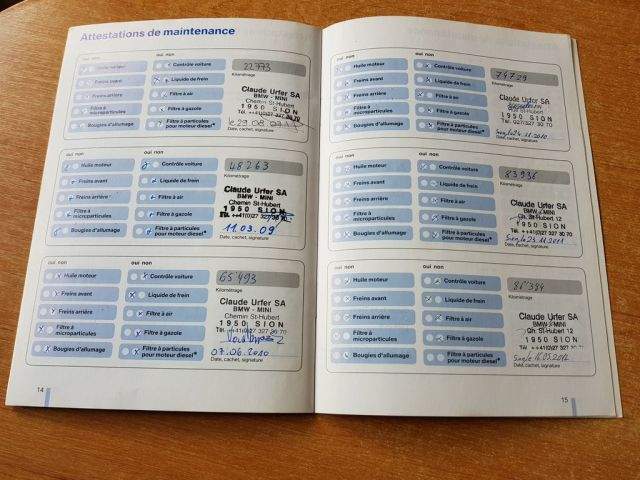 Attestations de maintenance
oui non oui non
Huile moteur Contrôle voiture 22773
Kilométrage
Freins avant Liquide de frein
Freins arrière Filtre à air
Claude Urfer SA
BMW - MINI
Chemin St-Hubert
1950 SION
Filtre à microparticules Filtre à gazole
Bougies d'allumage Filtre à particules pour moteur diesel*
Date, cachet, signature
oui non oui non
Huile moteur Contrôle voiture 48263
Kilométrage
Freins avant Liquide de frein
Freins arrière Filtre à air
Claude Urfer SA
BMW - MINI
Chemin St-Hubert
1950 SION
Filtre à microparticules Filtre à gazole
Bougies d'allumage Filtre à particules pour moteur diesel*
11.03.09
Date, cachet, signature
oui non oui non
Huile moteur Contrôle voiture 65493
Kilométrage
Freins avant Liquide de frein
Freins arrière Filtre à air
Claude Urfer SA
BMW - MINI
Chemin St-Hubert
1950 SION
Filtre à microparticules Filtre à gazole
Bougies d'allumage Filtre à particules pour moteur diesel*
07.06.2010
Date, cachet, signature
14
oui non oui non
Huile moteur Contrôle voiture 74729
Kilométrage
Freins avant Liquide de frein
Freins arrière Filtre à air
Claude Urfer SA
1950 SION
Tél. 027/327 30 70
Filtre à microparticules Filtre à gazole
Bougies d'allumage Filtre à particules pour moteur diesel*
Date, cachet, signature
oui non oui non
Huile moteur Contrôle voiture 83936
Kilométrage
Freins avant Liquide de frein
Freins arrière Filtre à air
Claude Urfer SA
BMW - MINI
Ch. St-Hubert 12
1950 SION
Filtre à microparticules Filtre à gazole
Bougies d'allumage Filtre à particules pour moteur diesel*
Date, cachet, signature
oui non oui non
Huile moteur Contrôle voiture
Kilométrage
Freins avant Liquide de frein
Freins arrière Filtre à air
Claude Urfer SA
BMW - MINI
Ch. St-Hubert 12
1950 SION
Filtre à microparticules Filtre à gazole
Bougies d'allumage Filtre à particules pour moteur diesel*
Date, cachet, signature
15